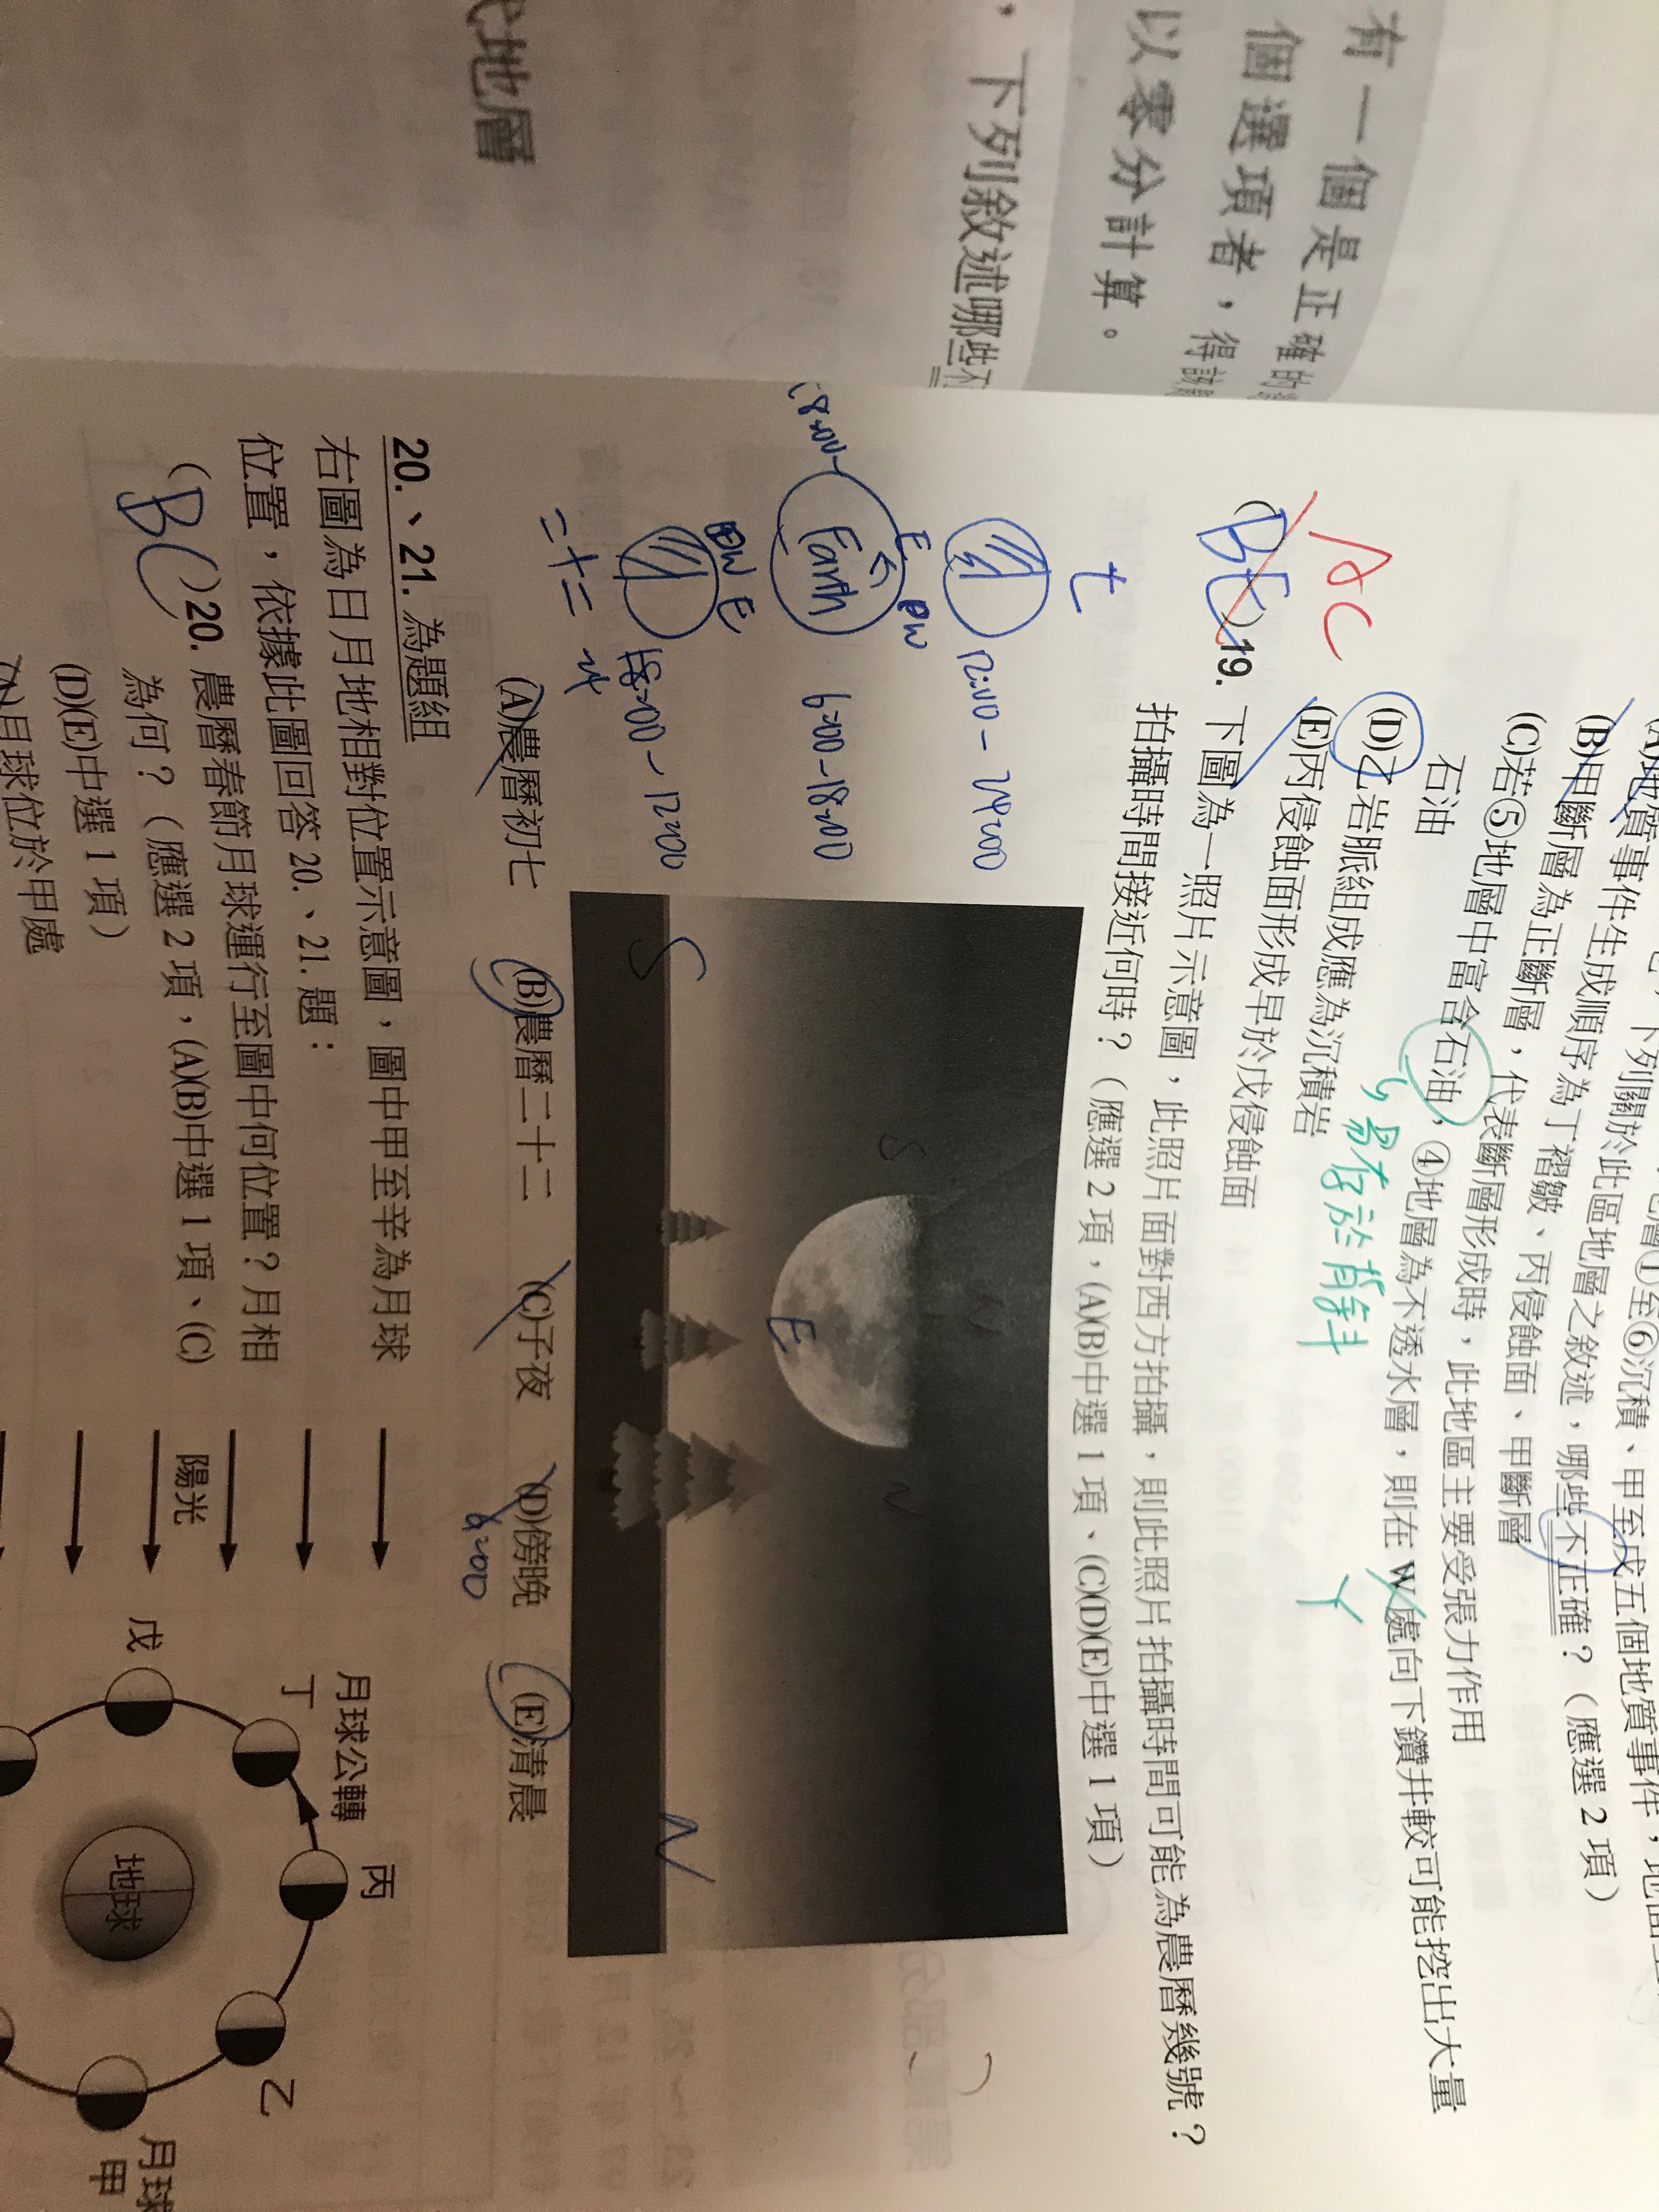 有一個是正確的
個選項者，得該
以零分計算。
，下列敘述哪些不
地層
下列關於此區地層之敘述，哪些不正確？（應選 2 項）
(B)甲斷層為正斷層，代表斷層形成時，此地區主要受張力作用
(C)若⑤地層中富含石油，④地層為不透水層，則在 W 處向下鑽井較可能挖出大量
石油
(D)乙岩脈組成應為沉積岩
(E)丙侵蝕面形成早於戊侵蝕面
易存於背斜
Y
AC
(BE)19. 下圖為一照片示意圖，此照片面對西方拍攝，則此照片拍攝時間可能為農曆幾號？
拍攝時間接近何時？（應選 2 項，(A)(B)中選 1 項、(C)(D)(E)中選 1 項）
12:00 - 24:00
E
Earth
6:00-18:00
E
18:00-12:00
二十二
S
E
N
S
N
(A)農曆初七 (B)農曆二十二 (C)子夜 (D)傍晚 (E)清晨
6:00
20.、21. 為題組
右圖為日月地相對位置示意圖，圖中甲至辛為月球
位置，依據此圖回答 20.、21. 題：
(BC)20. 農曆春節月球運行至圖中何位置？月相
為何？（應選 2 項，(A)(B)中選 1 項、(C)
(D)(E)中選 1 項）
(A)月球位於甲處
陽光
月球公轉
丙
丁
戊
地球
乙
月球
甲